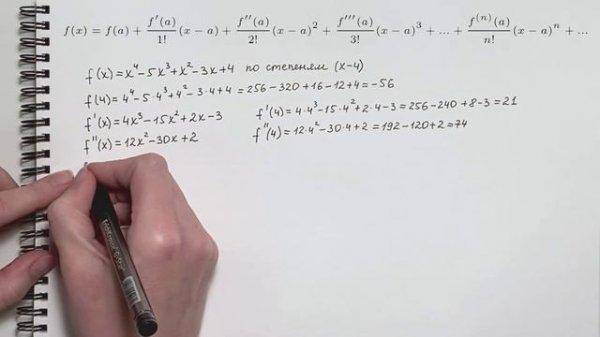 f(x) = f(a) + f'(a)/1! (x − a) + f''(a)/2! (x − a)² + f'''(a)/3! (x − a)³ + ... + f⁽ⁿ⁾(a)/n! (x − a)ⁿ + ...
f(x) = x⁴ − 5x³ + x² − 3x + 4 по степеням (x−4)
f(4) = 4⁴ − 5·4³ + 4² − 3·4 + 4 = 256 − 320 + 16 − 12 + 4 = −56
f'(x) = 4x³ − 15x² + 2x − 3 f'(4) = 4·4³ − 15·4² + 2·4 − 3 = 256 − 240 + 8 − 3 = 21
f''(x) = 12x² − 30x + 2 f''(4) = 12·4² − 30·4 + 2 = 192 − 120 + 2 = 74